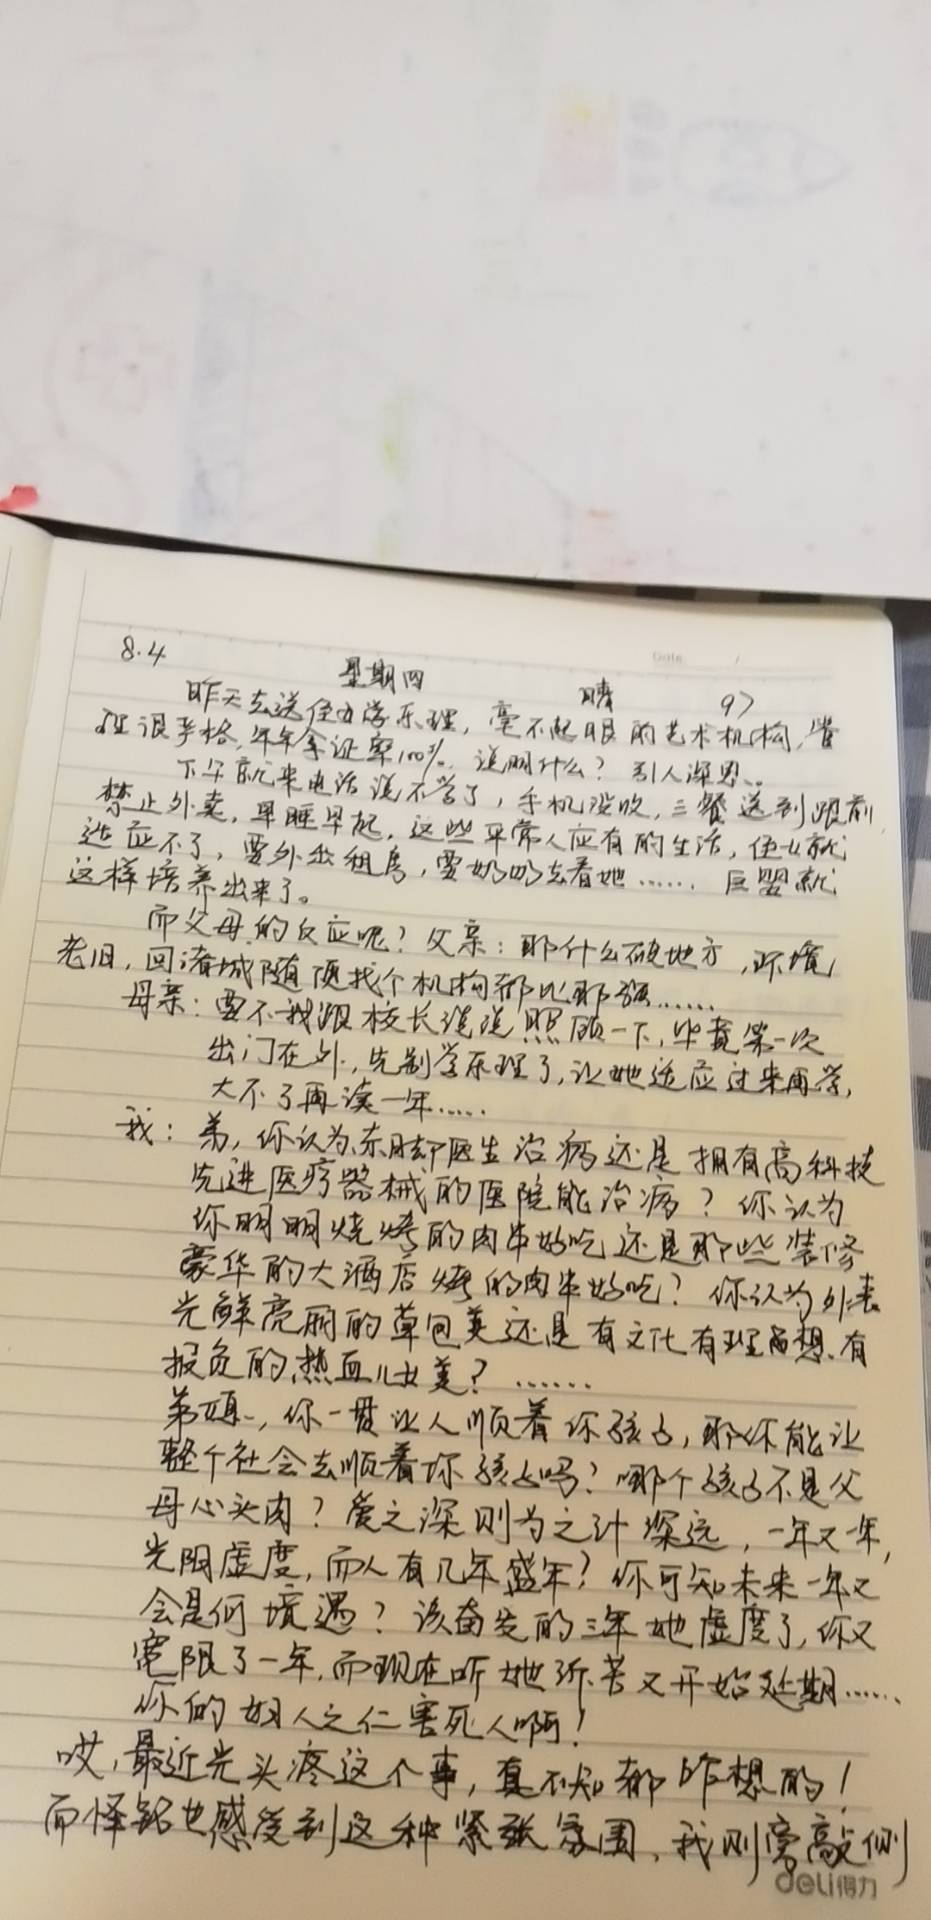 8.4 星期四 晴 97
Date /
昨天去送侄女学乐理，毫不起眼的艺术机构，管
理很严格，年年拿证率100%，说明什么？引人深思。
下午就来电话说不学了，手机没收，三餐送到跟前，
禁止外卖，早睡早起，这些平常人应有的生活，侄女就
适应不了，要外出租房，要奶奶去看她……，巨婴就
这样培养出来了。
而父母的反应呢？父亲：那什么破地方，环境
老旧，回诸城随便找个机构都比那强……
母亲：要不我跟校长说说照顾一下，毕竟第一次
出门在外，先别学乐理了，让她适应过来再学，
大不了再读一年……
我：弟，你认为是医生治病还是拥有高科技
先进医疗器械的医院能治病？你认为
你明明烧烤的肉串好吃还是那些装修
豪华的大酒店烤的肉串好吃？你认为外表
光鲜亮丽的草包美还是有文化有理想、有
报负的热血儿女美？……
弟媳，你一贯让人顺着你孩子，那你能让
整个社会去顺着你孩子吗？哪个孩子不是父
母心头肉？爱之深则为之计深远，一年又一年，
光阴虚度，而人有几年盛年？你可知未来一年又
会是何境遇？该奋发的三年她虚度了，你又
宽限了一年，而现在听她诉苦又开始延期……
你的妇人之仁害死人啊！
哎，最近光头疼这个事，真不知都咋想的！
而怿铭也感受到这种紧张氛围，我则旁敲侧
deli得力